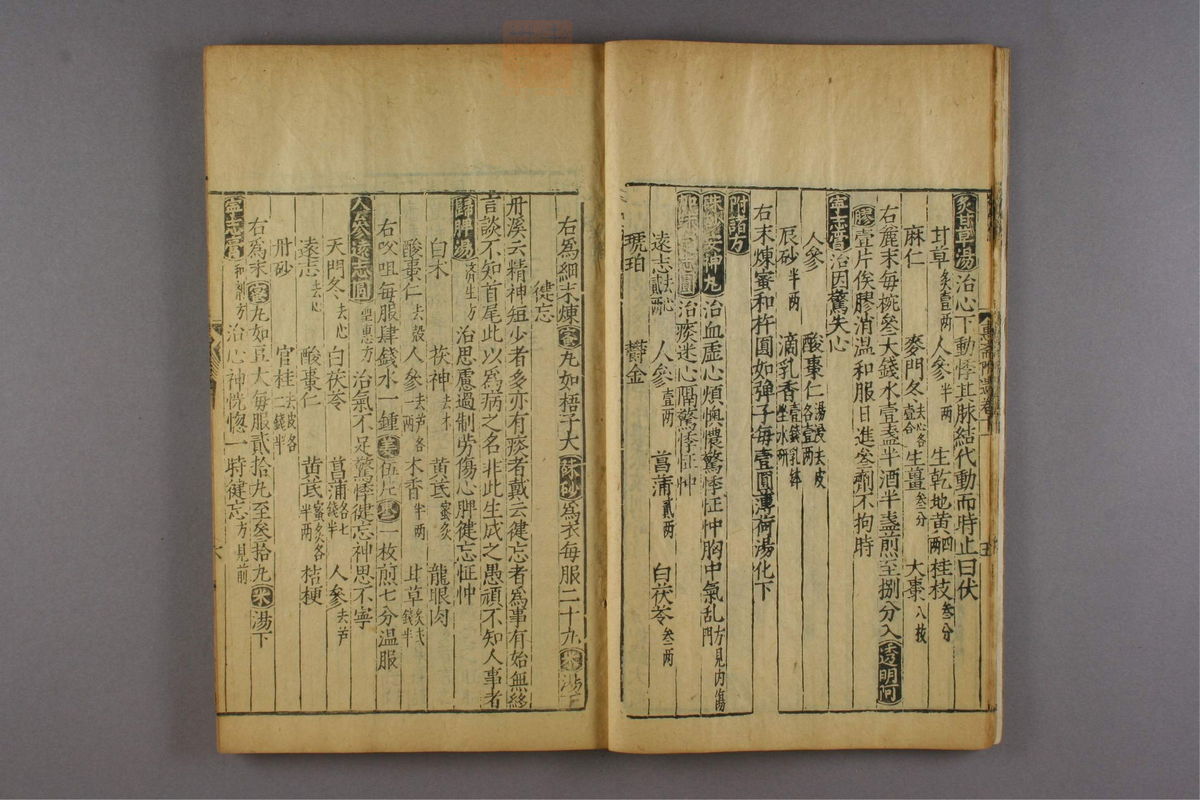 炙甘草湯 治心下動悸其脉結代動而時止曰伏
甘草炙壹兩 人參半兩 生乾地黄四兩 桂枝叁分
麻仁 麥門冬去心各壹合 生薑叁分 大棗八枚
右麄末每挑叁大錢水壹盞半酒半盞煎至捌分入透明阿
膠壹片俟膠消温和服日進叁劑不拘時
寧志膏 治因驚失心
人參 酸棗仁湯浸去皮各壹兩
辰砂半兩 滴乳香壹錢乳鉢坐水研
右末煉蜜和杵圓如弹子每壹圓薄荷湯化下
附諸方
硃砂安神丸 治血虚心煩懊憹驚悸怔忡胸中氣乱方見内傷門
治痰迷心隔驚悸怔忡
遠志去心貳兩 人參壹兩 菖蒲貳兩 白茯苓叁兩
琥珀 欝金
右爲細末煉蜜丸如梧子大硃砂爲衣每服二十丸米湯下
徤忘
丹溪云精神短少者多亦有痰者戴云徤忘者爲事有始無終
言談不知首尾此以爲病之名非此生成之愚頑不知人事者
歸脾湯濟生方 治思慮過制劳傷心脾徤忘怔忡
白术 茯神去木 黄芪蜜炙 龍眼肉
酸棗仁去殻 人參去芦各一兩 木香半兩 甘草炙弍錢半
右㕮咀每服肆錢水一鍾姜伍片棗一枚煎七分温服
人參遠志圓聖惠方 治氣不足驚悸徤忘神思不寧
天門冬去心 白茯苓 菖蒲各七錢半 人參去芦
遠志去心 酸棗仁 黄芪蜜炙各半兩 桔梗
丹砂 官桂去皮各二錢半
右爲末蜜丸如豆大每服貳拾丸至叁拾丸米湯下
寧志膏和劑方 治心神恍惚一時徤忘方見前